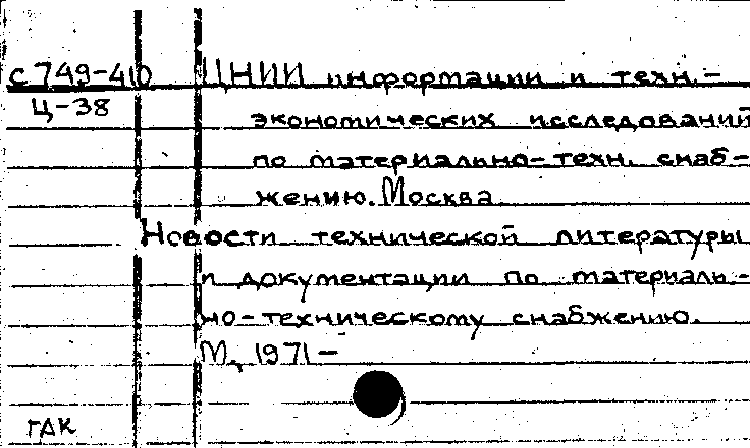 с 749-410 ЦНИИ информации и техн.-
Ц-38
экономических исследований
по материально-техн. снаб-
жению. Москва
Новости технической литературы
и документации по материаль-
но-техническому снабжению.
М., 1971 –
ГАК